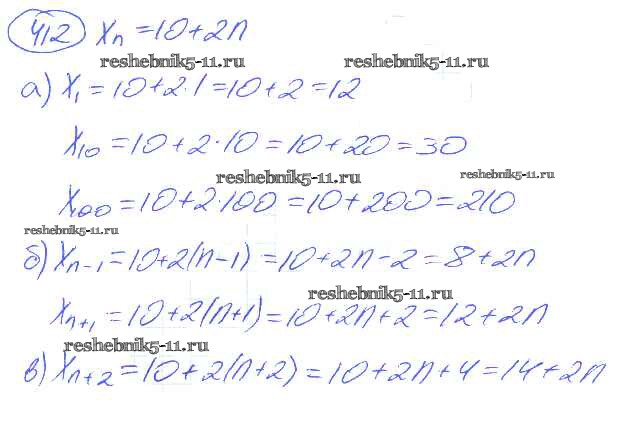 412 Xₙ = 10 + 2n
reshebnik5-11.ru reshebnik5-11.ru
а) X₁ = 10 + 2·1 = 10 + 2 = 12
X₁₀ = 10 + 2·10 = 10 + 20 = 30
reshebnik5-11.ru reshebnik5-11.ru
X₁₀₀ = 10 + 2·100 = 10 + 200 = 210
reshebnik5-11.ru
б) Xₙ₋₁ = 10 + 2(n-1) = 10 + 2n - 2 = 8 + 2n
reshebnik5-11.ru
Xₙ₊₁ = 10 + 2(n+1) = 10 + 2n + 2 = 12 + 2n
reshebnik5-11.ru
в) Xₙ₊₂ = 10 + 2(n+2) = 10 + 2n + 4 = 14 + 2n